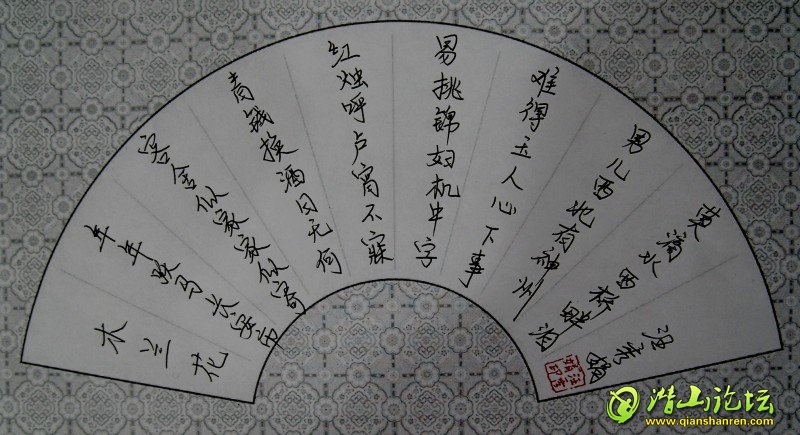 木兰花
年年跃马长安市
客舍似家家似寄
青钱换酒日无何
红烛呼卢宵不寐
易挑锦妇机中字
难得玉人心下事
男儿西北有神州
莫滴水西桥畔泪
潜山论坛
www.qianshanren.com